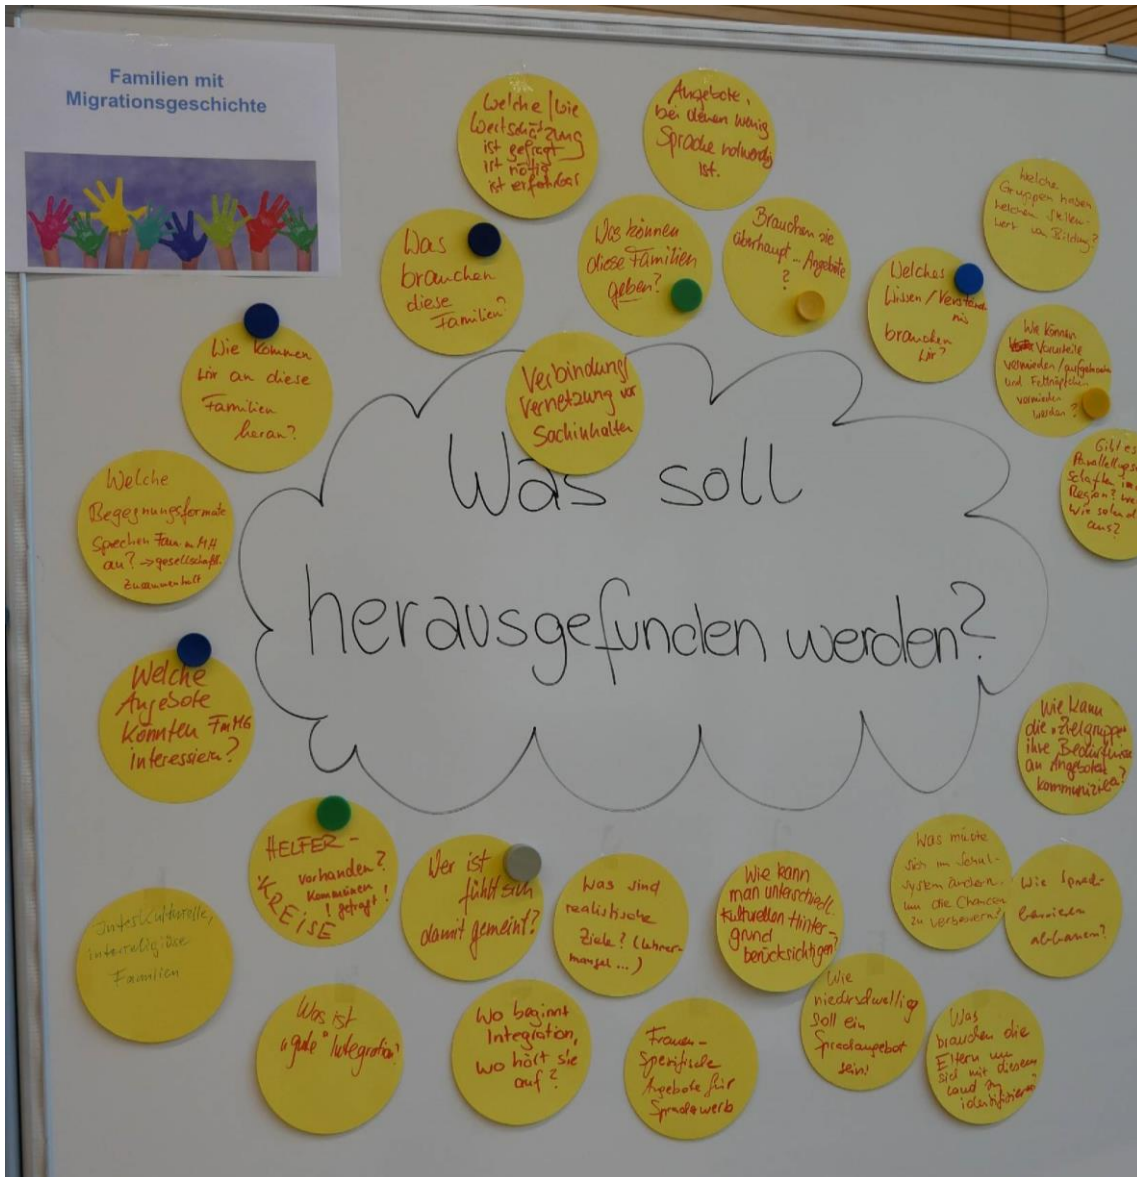 Familien mit
Migrationsgeschichte
Welche / wie
Wertschätzung
ist gefragt
ist nötig
ist erfahrbar
Angebote,
bei denen wenig
Sprache notwendig
ist.
Welche
Gruppen haben
welchen Stellen-
wert von Bildung?
Was
brauchen
diese
Familien?
Was können
diese Familien
geben?
Brauchen sie
überhaupt - Angebote
?
Welches
Wissen / Verständ
nis
brauchen
wir?
Wie können
Vorurteile
vermieden /
und Fettnäpfchen
vermieden
werden?
Wie kommen
wir an diese
Familien
heran?
Verbindung/
Vernetzung vor
Sachinhalten
Gibt es
Region?
aus?
Welche
Begegnungsformate
sprechen Fam. m MH
an? → gesellschaftl.
Zusammenhalt
Was soll
herausgefunden werden?
Welche
Angebote
könnten FmMG
interessiern?
Wie kann
die "Zielgruppe"
ihre Bedürfnisse
an Angeboten
HELFER -
KREISE
vorhanden?
Kommunen
! gefragt !
Wer ist
fühlt sich
damit gemeint?
Was sind
realistische
Ziele? (Lehrer-
mangel ...)
Wie kann
man unterschiedl.
kulturellen Hinter-
grund
berücksichtigen?
Was müste
sich im Schul-
system ändern,
um die Chancen
zu verbessern?
Wie Sprach-
barrieren
abbauen?
Interkulturelle,
interreligiöse
Familien
Was ist
"gute" Integration?
Wo beginnt
Integration,
wo hört sie
auf?
Frauen-
spezifische
Angebote für
Wie
niederschwellig
soll ein
Sprachangebot
sein!
Was
brauchen die
Eltern um
sich mit diesem
Land zu
identifizieren